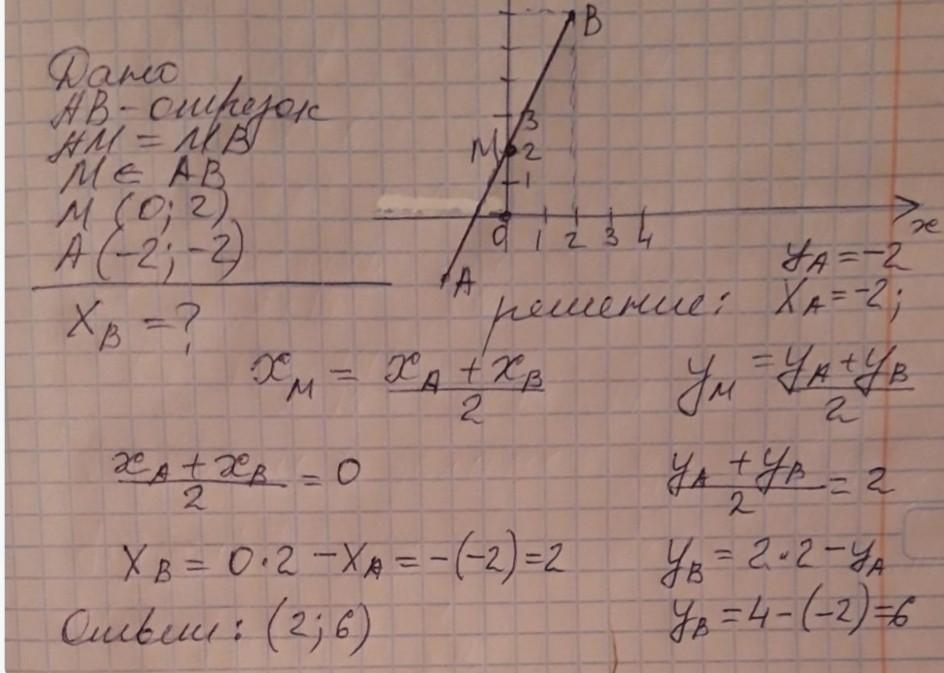 Дано
AB - отрезок
AM = MB
M ∈ AB
M (0; 2)
A (-2; -2)
X_B = ?
B
3
M 2
1
0 1 2 3 4
x
A
решение:
y_A = -2
X_A = -2;
x_M = (x_A + x_B)/2
y_M = (y_A + y_B)/2
(x_A + x_B)/2 = 0
(y_A + y_B)/2 = 2
X_B = 0·2 - X_A = -(-2) = 2
y_B = 2·2 - y_A
y_B = 4 - (-2) = 6
Ответ: (2; 6)